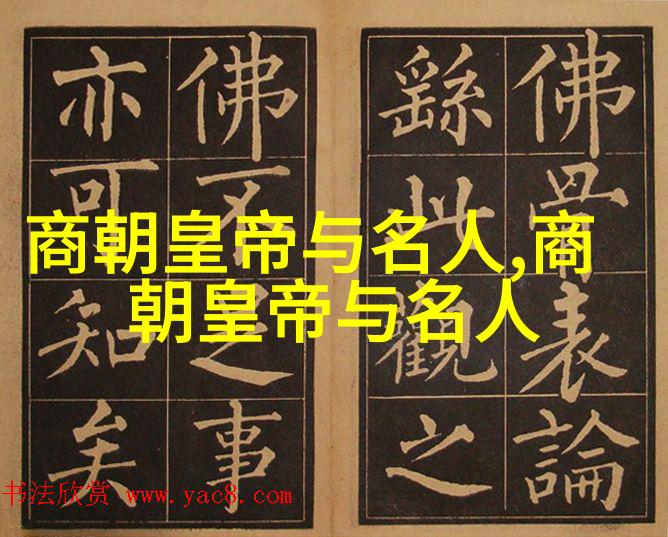 佛骨表論
繇此觀之
佛不足事
亦可知矣
商朝皇帝与名人,商
朝皇帝与名人
书法欣赏 www.yac8.com